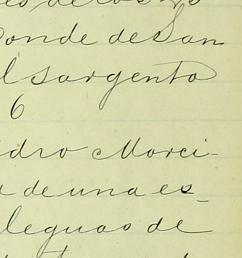 de los
Conde de San
l Sargento
6
edro Morci-
a de una es-
leguas de